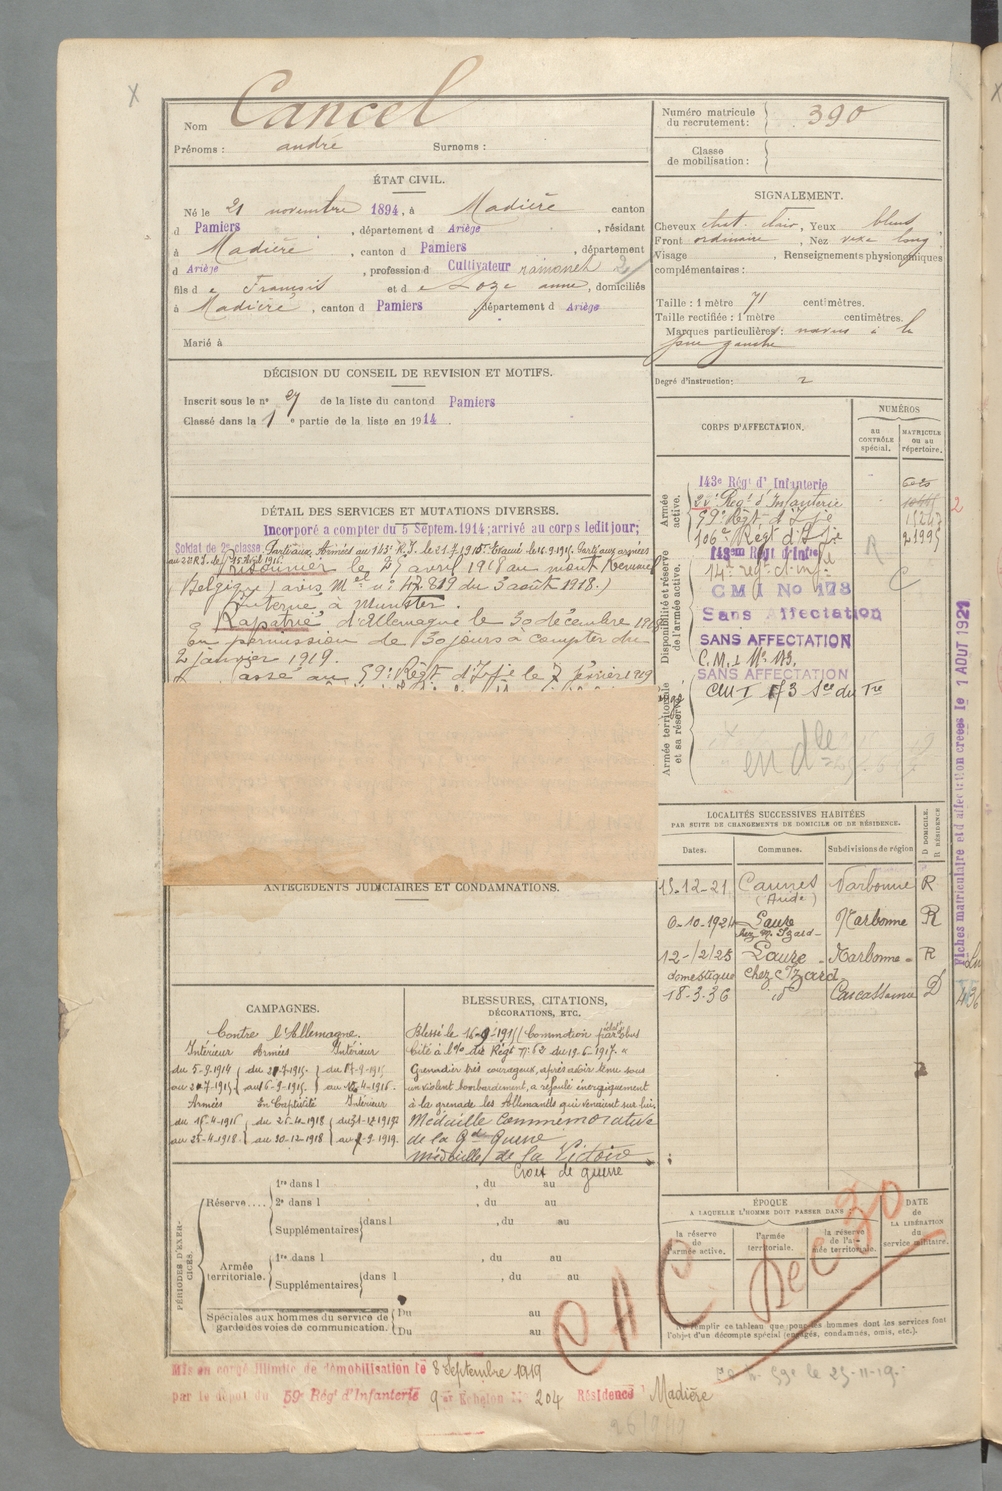 Nom Cancel
Prénoms : andré Surnoms :
Numéro matricule du recrutement : 390
Classe de mobilisation :
ÉTAT CIVIL.
Né le 21 novembre 1894, à Madière canton
d Pamiers, département d Ariège, résidant
à Madière, canton d Pamiers, département
d Ariège, profession d Cultivateur ramonet 2
fils de François et de Loze anne, domiciliés
à Madière, canton d Pamiers, département d Ariège
Marié à
SIGNALEMENT.
Cheveux chat. clair, Yeux bleus
Front ordinaire, Nez vexe long
Visage , Renseignements physionomiques
complémentaires :
Taille : 1 mètre 71 centimètres.
Taille rectifiée : 1 mètre centimètres.
Marques particulières : nœvus à la
joue gauche
Degré d'instruction : 2
DÉCISION DU CONSEIL DE REVISION ET MOTIFS.
Inscrit sous le n° 27 de la liste du canton d Pamiers
Classé dans la 1e partie de la liste en 1914.
DÉTAIL DES SERVICES ET MUTATIONS DIVERSES.
Incorporé a compter du 5 Septem. 1914; arrivé au corps ledit jour;
Soldat de 2e classe. Parti aux Armées au 143e R.I. le 21.7.1915. Evacué le 16.9.1915. Parti aux armées
Prisonnier le 25 avril 1918 au mont Kemmel
(Belgique) (avis Mel n° 42819 du 3 août 1918.)
Interné à Munster.
Rapatrié d'Allemagne le 30 décembre 1918
En permission de 30 jours à compter du
2 janvier 1919.
Passé au 59e Régt d'Ifie le 7 février 1919
CORPS D'AFFECTATION.
NUMÉROS
au CONTRÔLE spécial.
MATRICULE ou au répertoire.
Armée active.
143e Régt d'Infanterie
2e Regt d'Infanterie
59e Regt d'Ifie
106e Regt d'Ifie 21995
Disponibilité et réserve de l'armée active.
143em Régt d'Infie
14e reg. d'infie
C M I No 178
Sans Affectation
SANS AFFECTATION
C.M.I No 173.
SANS AFFECTATION
Armée territoriale et sa réserve.
CMI 173 Son du Tre
en dle
Fiches matriculaire et d'affectation créées le 1 AOUT 1921
LOCALITÉS SUCCESSIVES HABITÉES
PAR SUITE DE CHANGEMENTS DE DOMICILE OU DE RÉSIDENCE.
Dates. Communes. Subdivisions de région D DOMICILE. R RÉSIDENCE
13-12-21 Caunes (Aude) Narbonne R
0-10-1924 Laure chez M. Izard Narbonne R
12-/2/25 Laure Narbonne R
domestique chez Izard
18-3-36 id Carcassonne D
ANTÉCÉDENTS JUDICIAIRES ET CONDAMNATIONS.
CAMPAGNES.
Contre l'Allemagne.
Intérieur Armées Intérieur
du 5-9-1914 du 21-7-1915 du 17-9-1915
au 20-7-1915 au 16-9-1915. au 14-4-1916.
Armées En Captivité Intérieur
du 15-4-1916 du 26-4-1918 du 31-12-1918
au 25-4-1918. au 30-12-1918 au 7-9-1919.
BLESSURES, CITATIONS,
DÉCORATIONS, ETC.
Blessé le 16-9-1915 (Commotion par éclat d'obus
Cité à l'O/ du Régt N° 62 du 19-6-1917. "
Grenadier très courageux, après avoir tenu sous
un violent bombardement, a refoulé énergiquement
à la grenade les Allemands qui venaient sur lui.
Médaille Commémorative
de la Gde Guerre
Médaille de la Victoire
Croix de guerre
PÉRIODES D'EXERCICES.
Réserve.... 1re dans l , du au
2e dans l , du au
Supplémentaires dans l , du au
Armée territoriale. 1re dans l , du au
Supplémentaires dans l , du au
Spéciales aux hommes du service de garde des voies de communication. Du au
Du au
ÉPOQUE
A LAQUELLE L'HOMME DOIT PASSER DANS :
la réserve de l'armée active.
l'armée territoriale.
la réserve de l'armée territoriale.
DATE de LA LIBÉRATION du service militaire.
CAC Dec 30
Ne remplir ce tableau que pour les hommes dont les services font
l'objet d'un décompte spécial (engagés, condamnés, omis, etc.).
Mis en congé illimité de démobilisation le 8 Septembre 1919
par le dépôt du 59e Régt d'Infanterie 9e Echelon No 204 Résidence Madière
59e le 25-11-19.